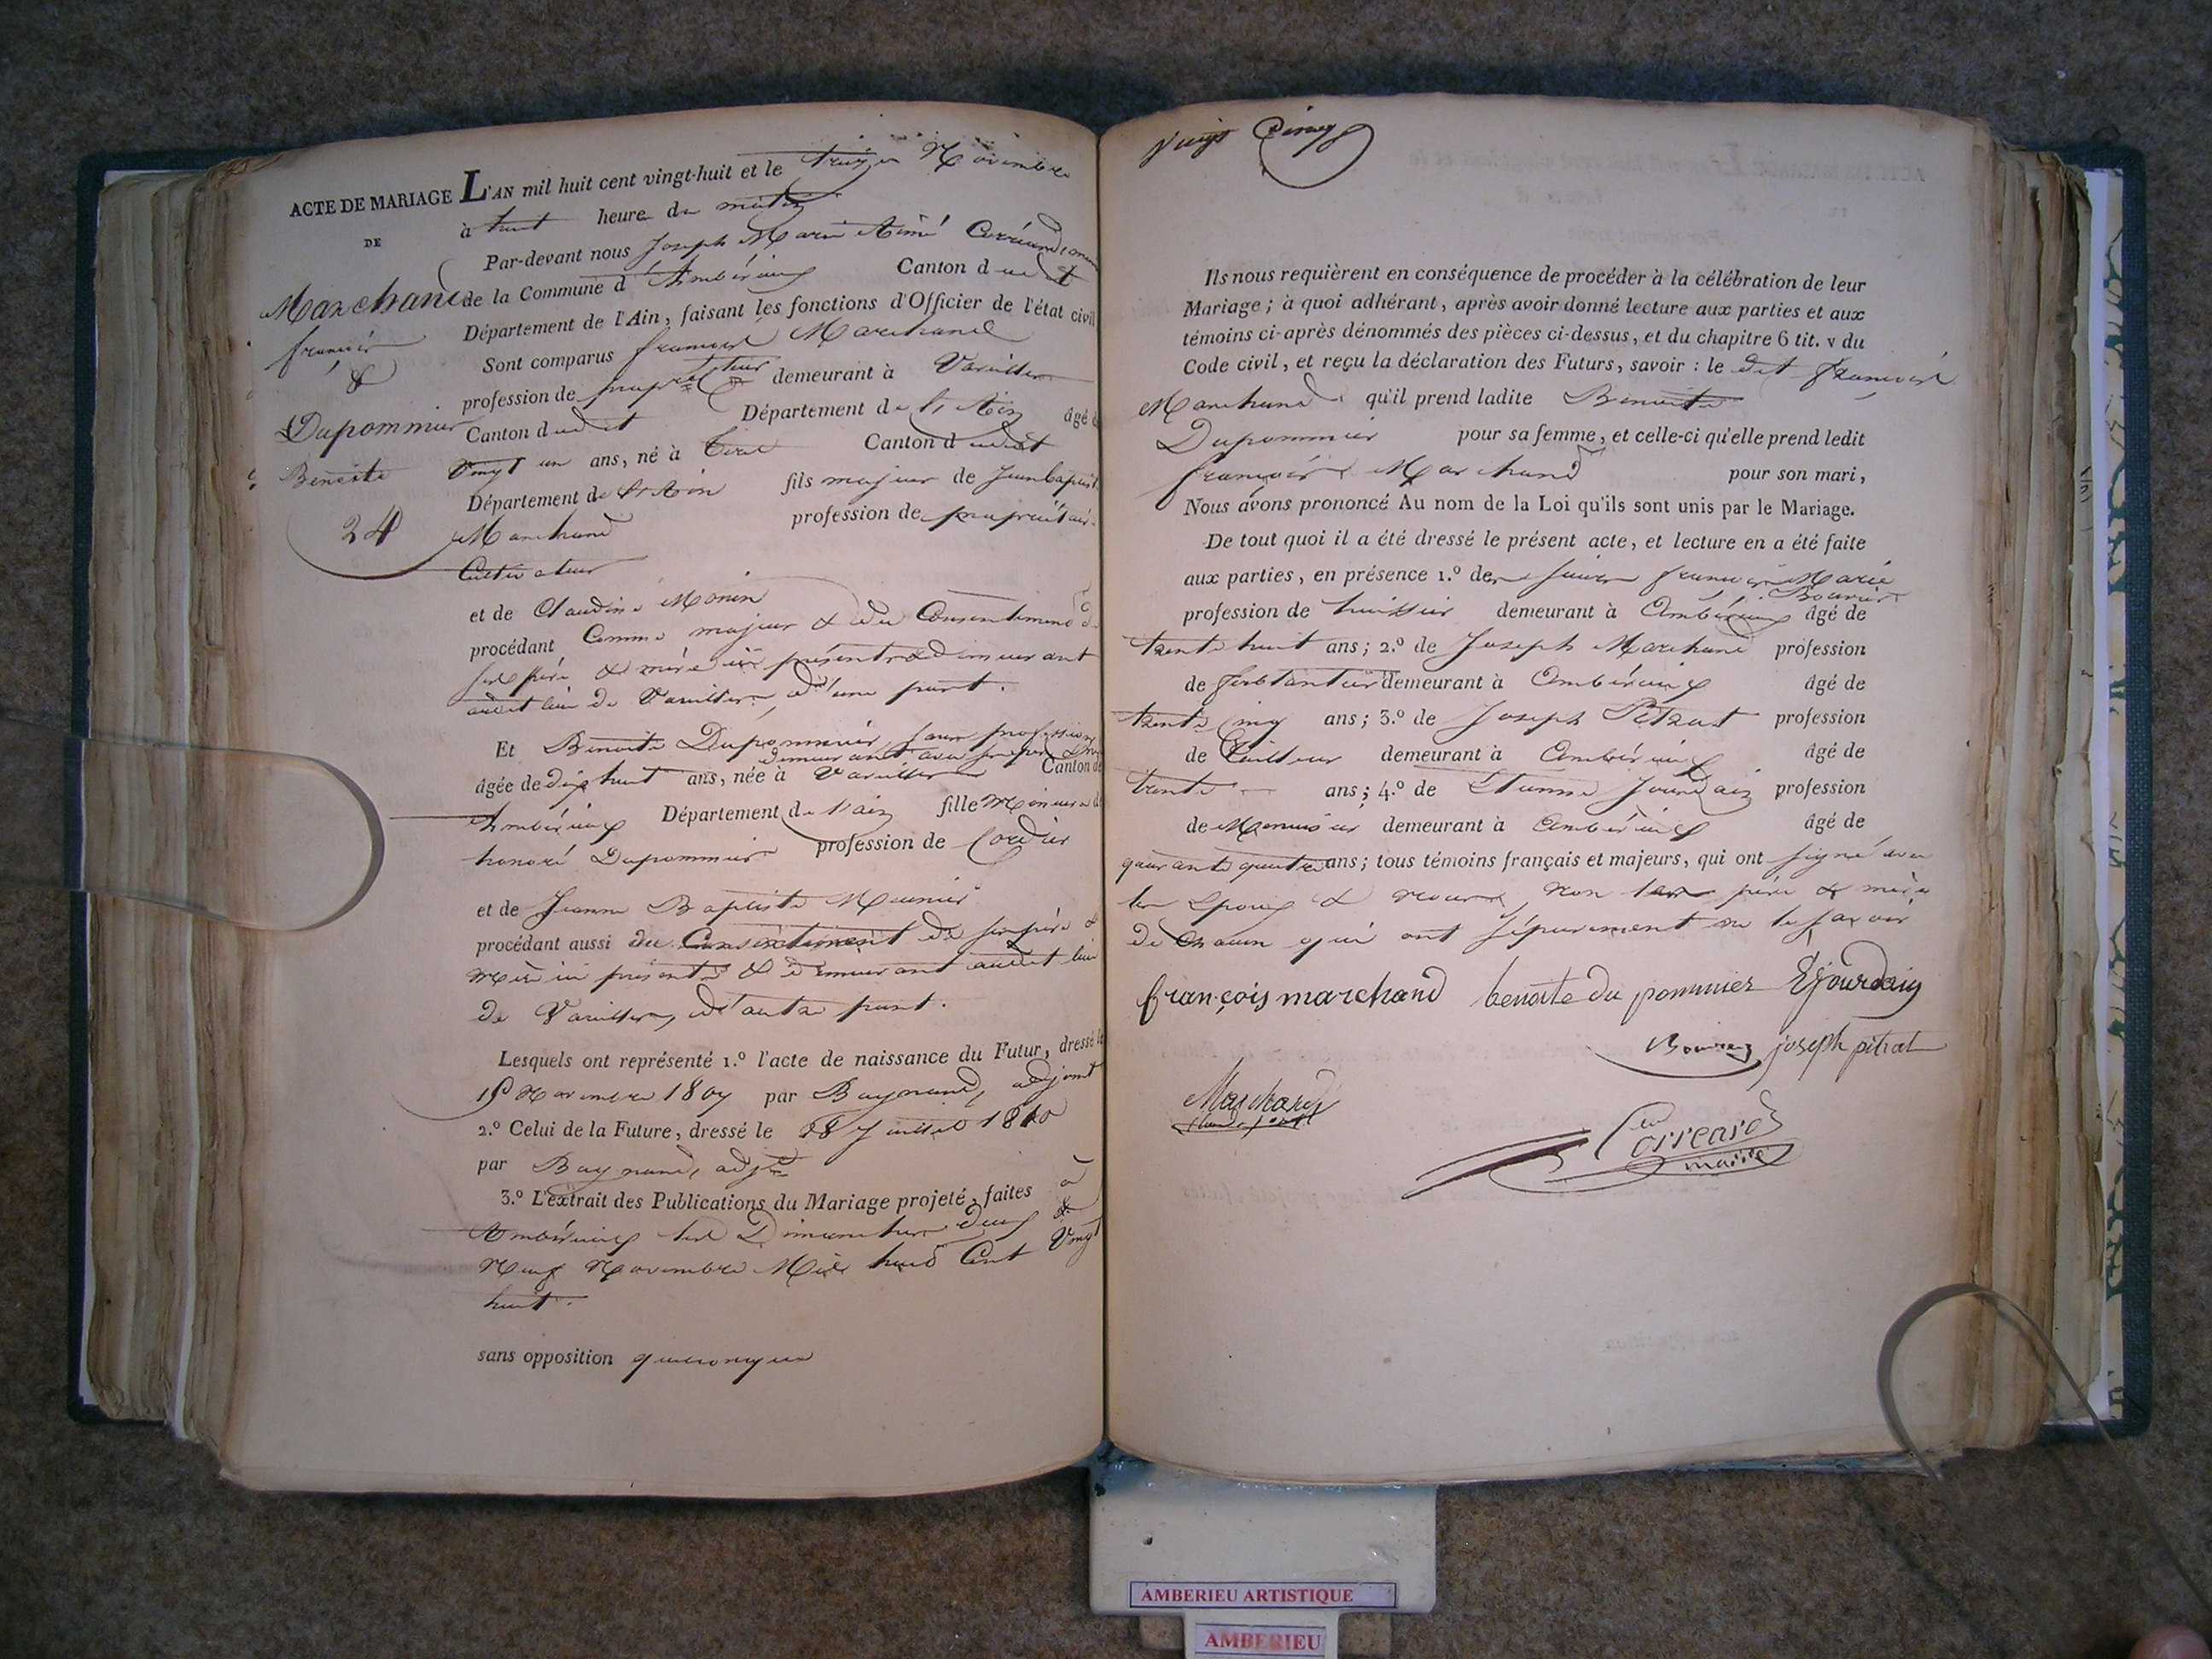 ACTE DE MARIAGE
DE
Marchand
françois
&
Dupommier
Benoite
24
L'AN mil huit cent vingt-huit et le treize Novembre
à huit heure du matin
Par-devant nous Joseph Marie Aimé Corréard, maire
de la Commune d'Ambérieux Canton dudit
Département de l'Ain, faisant les fonctions d'Officier de l'état civil
Sont comparus françois Marchand
profession de demeurant à Vareilles
Canton dudit Département de l'Ain âgé de
Vingt un ans, né à Canton dudit
Département de l'Ain fils majeur de Jean baptiste
Marchand profession de propriétaire
Cultivateur
et de Claudine Monin
procédant Comme majeur & du Consentement de
ses père & mère ici présents & demeurant
audit lieu de Vareilles, d'une part.
Et Benoite Dupommier, sans profession
demeurant avec ses père &
âgée de dix huit ans, née à Vareilles Canton de
Ambérieux Département de l'ain fille Mineure de
honoré Dupommier profession de Cordier
et de Jeanne Baptiste Meunier
procédant aussi du Consentement de ses père &
Mère ici présents & demeurant audit lieu
de Vareilles, d'autre part.
Lesquels ont représenté 1.º l'acte de naissance du Futur, dressé le
Novembre 1807 par Baynand, adjoint
2.º Celui de la Future, dressé le 28 Juillet 1810
par Baynand, adjt
3.º L'extrait des Publications du Mariage projeté, faites à
Ambérieux les Dimanches deux &
Neuf Novembre Mil huit Cent Vingt
huit.
sans opposition quelconque
Vingt Cinq
Ils nous requièrent en conséquence de procéder à la célébration de leur
Mariage ; à quoi adhérant, après avoir donné lecture aux parties et aux
témoins ci-après dénommés des pièces ci-dessus, et du chapitre 6 tit. v du
Code civil, et reçu la déclaration des Futurs, savoir : le dit françois
Marchand qu'il prend ladite Benoite
Dupommier pour sa femme, et celle-ci qu'elle prend ledit
françois Marchand pour son mari,
Nous avons prononcé Au nom de la Loi qu'ils sont unis par le Mariage.
De tout quoi il a été dressé le présent acte, et lecture en a été faite
aux parties, en présence 1.º de françois Marie
Bouvier
profession de huissier demeurant à Ambérieux âgé de
trente huit ans ; 2.º de Joseph Marchand profession
de ferblantier demeurant à Ambérieux âgé de
trente cinq ans ; 3.º de Joseph Pitrat profession
de tailleur demeurant à Ambérieux âgé de
trente ans ; 4.º de Etienne Jourdain profession
de Menuisier demeurant à Ambérieux âgé de
quarante quatre ans ; tous témoins français et majeurs, qui ont signé avec
les Epoux & nous, non les père & mère
de Chacun qui ont séparément dit ne le savoir
françois marchand benoite du pommier E Jourdain
Bouvier joseph pitrat
Marchand
Corréard
maire
AMBERIEU ARTISTIQUE
AMBERIEU